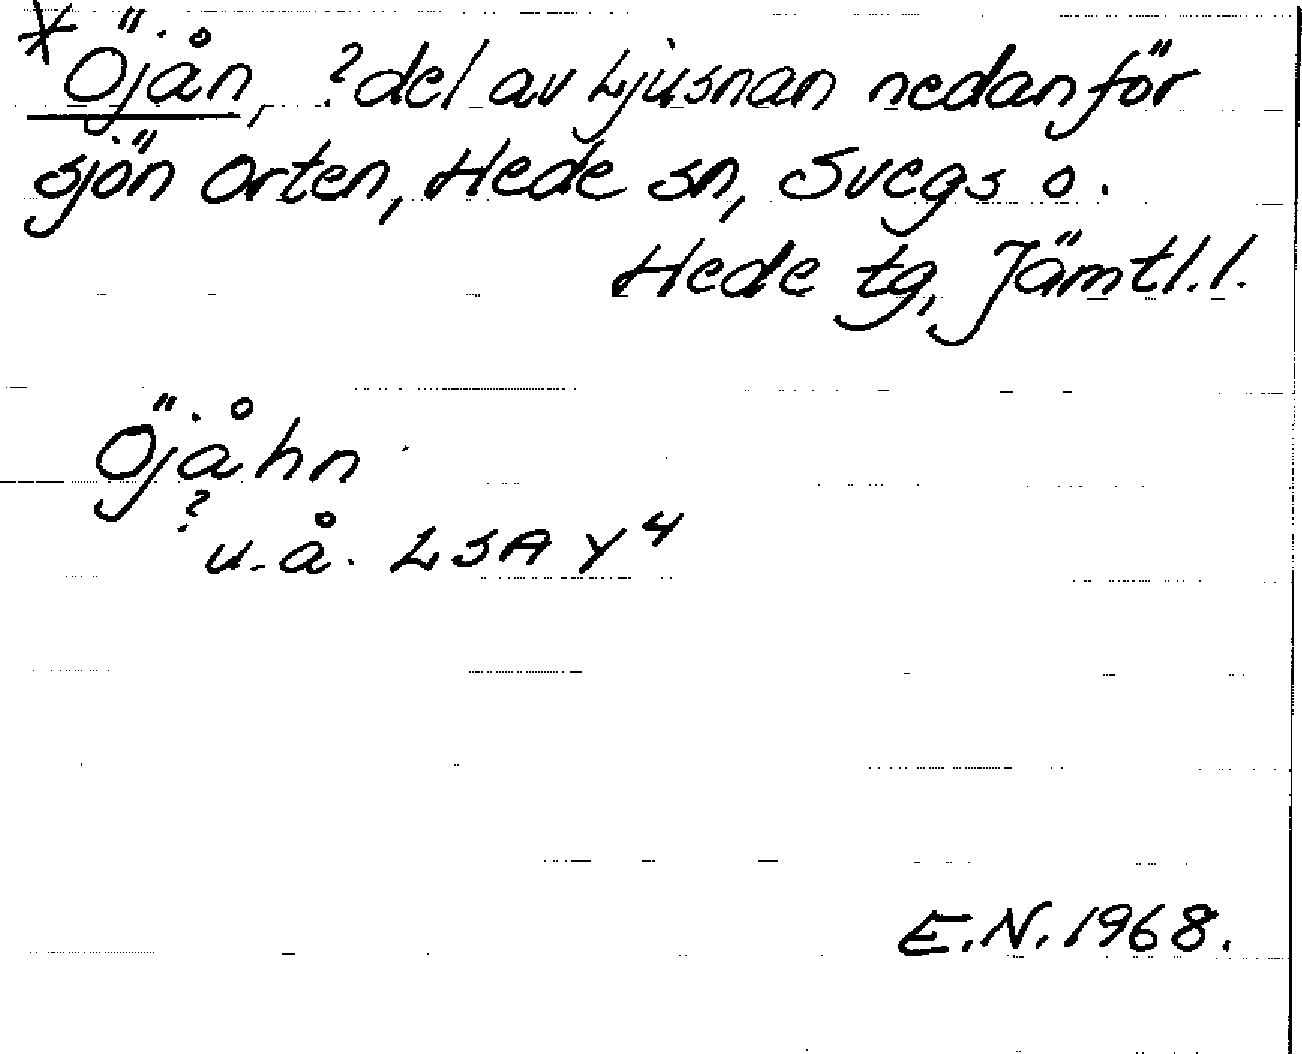 *Öjån, ?del av Ljusnan nedanför
sjön Orten, Hede sn, Svegs o.
Hede tg, Jämtl.l.
Öjåhn
?
u.å. LSA Y4
E.N. 1968.